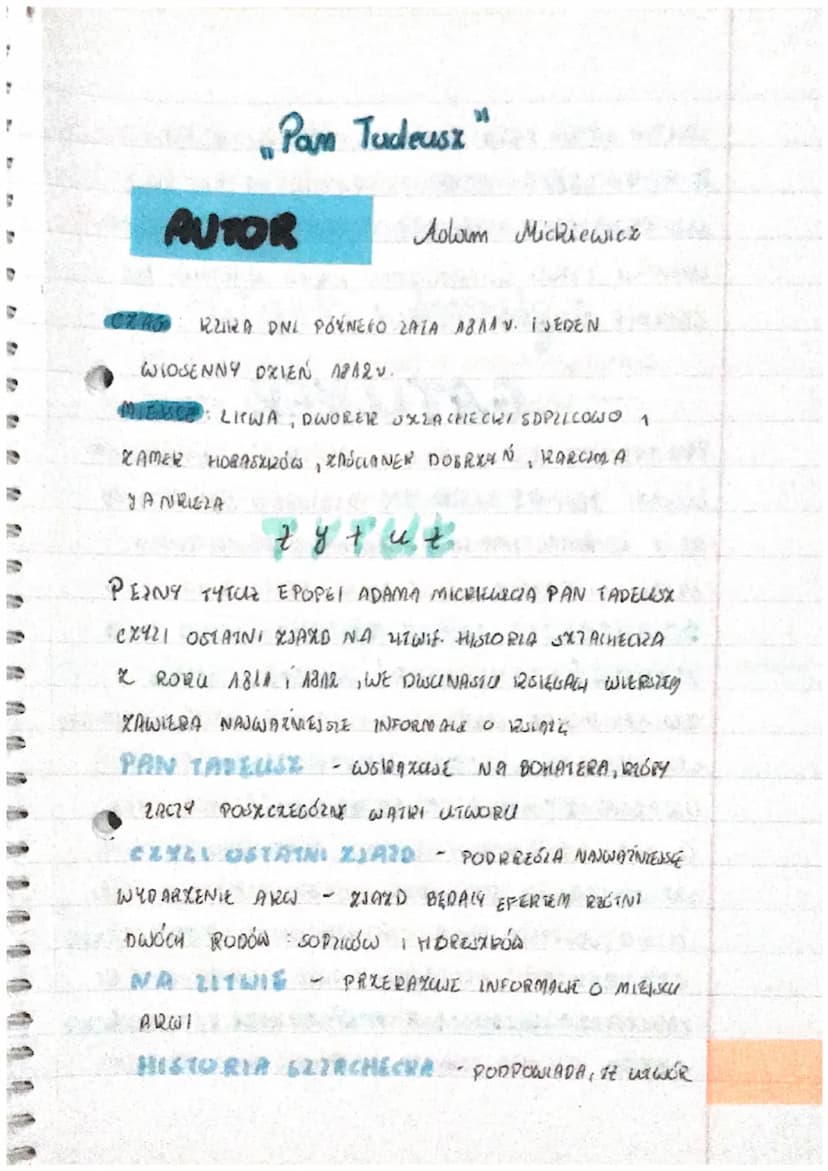 „Pan Tadeusz"
AUTOR Adam Mickiewicz
CZAS: KILKA DNI PÓŹNEGO LATA 1811 r. i JEDEN
WIOSENNY DZIEŃ 1812 r.
MIEJSCE: LITWA, DWOREK SZLACHECKI SOPLICOWO I
ZAMEK HORESZKÓW, ZAŚCIANEK DOBRZYŃ, KARCZMA
JANKIELA
tytuł
PEŁNY TYTUŁ EPOPEI ADAMA MICKIEWICZA PAN TADEUSZ
CZYLI OSTATNI ZJAZD NA LITWIE. HISTORIA SZLACHECKA
Z ROKU 1811 i 1812, WE DWUNASTU KSIĘGACH WIERSZEM
ZAWIERA NAJWAŻNIEJSZE INFORMACJE O KSIĄŻĘ
PAN TADEUSZ - WSKAZUJE NA BOHATERA, KTÓRY
ŁĄCZY POSZCZEGÓLNE WĄTKI UTWORU
CZYLI OSTATNI ZJAZD - PODKREŚLA NAJWAŻNIEJSZE
WYDARZENIE AKCJI - ZJAZD BĘDĄCY EFEKTEM KŁÓTNI
DWÓCH RODÓW: SOPLICÓW I HORESZKÓW
NA LITWIE - PRZEKAZUJE INFORMACJE O MIEJSCU
AKCJI
HISTORIA SZLACHECKA - PODPOWIADA, IŻ UTWÓR